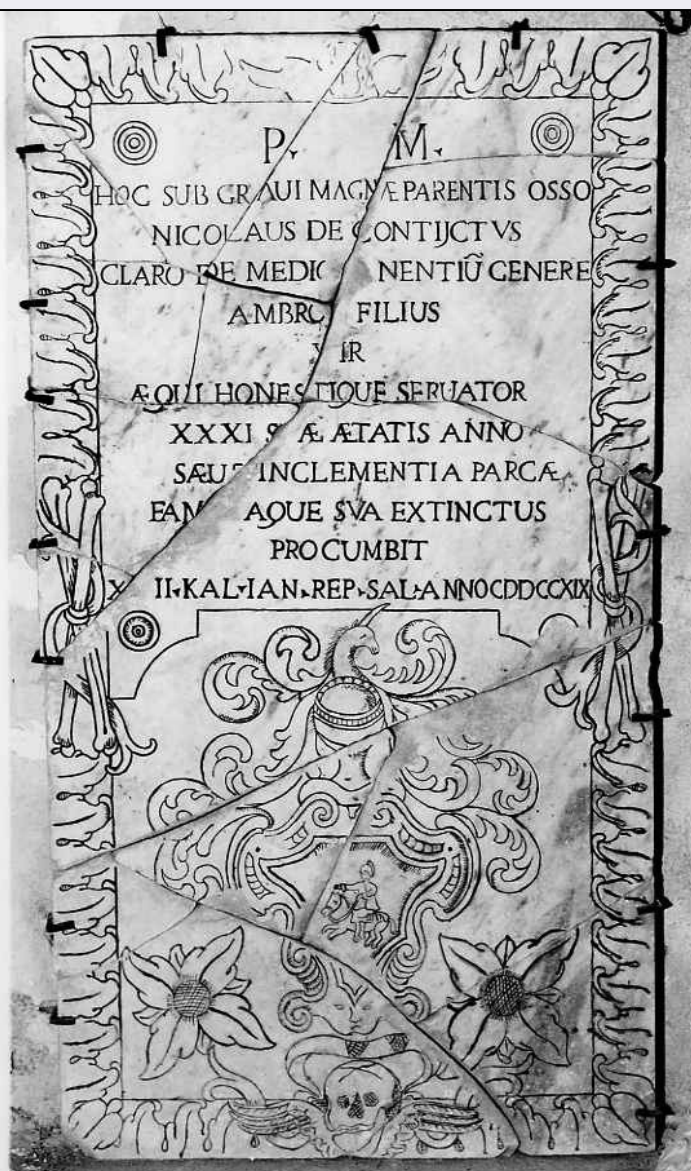 P. M.
HOC SUB GRAUI MAGNÆ PARENTIS OSSO
NICOLAUS DE CONTIJCTVS
CLARO DE GENERE
FILIUS
VIR
ÆQUI HONESTIQUE SERUATOR
XXXI ÆTATIS ANNO
INCLEMENTIA PARCÆ
SVA EXTINCTUS
PROCUMBIT
KAL IAN REP SAL ANNO CDDCCXIX